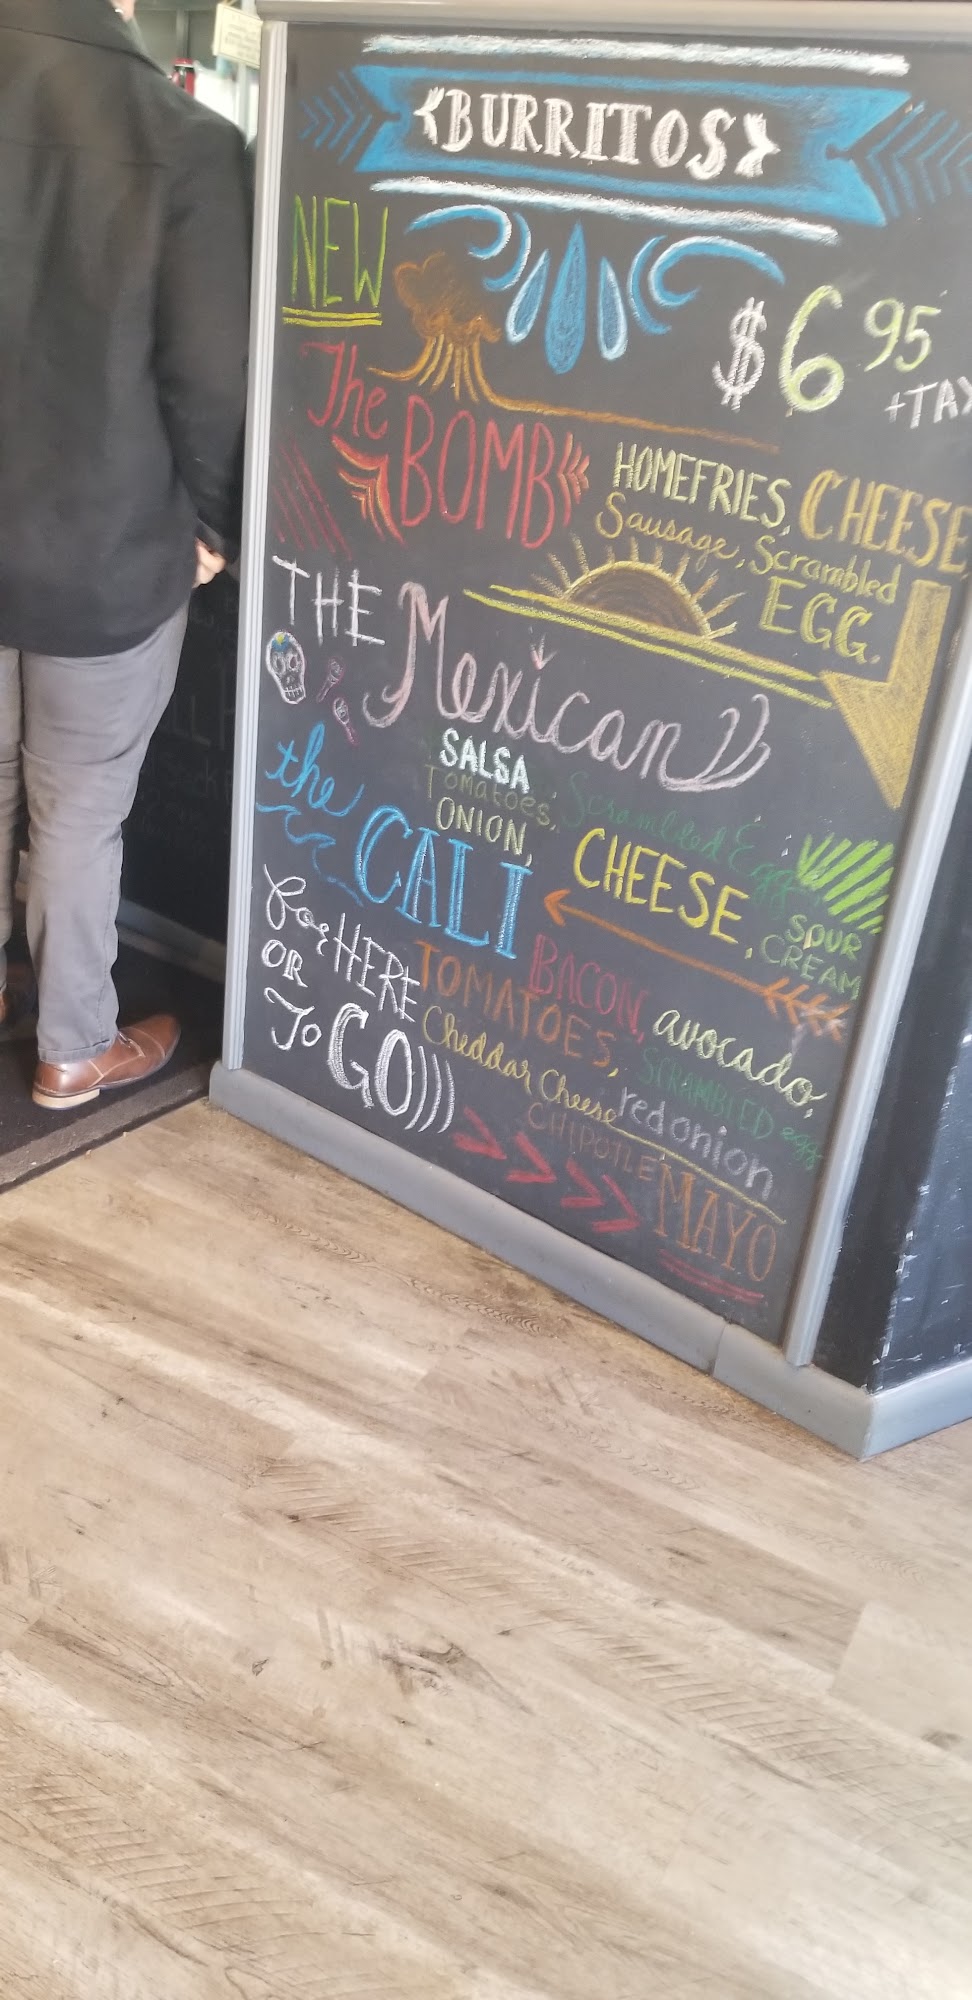 BURRITOS
NEW
$6.95
+TAX
The BOMB
HOMEFRIES, CHEESE,
Sausage, Scrambled
EGG.
THE Mexican
SALSA
Tomatoes, Scrambled Egg
ONION, CHEESE, SOUR
CREAM
the CALI
BACON, avocado,
TOMATOES, SCRAMBLED eggs
Cheddar Cheese red onion
CHIPOTLE MAYO
For HERE
OR
To GO